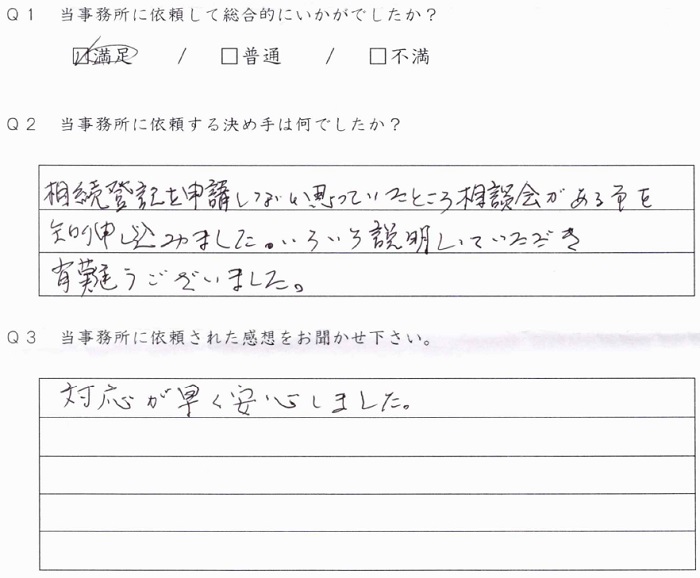 Q1 当事務所に依頼して総合的にいかがでしたか?
☑満足 / □普通 / □不満
Q2 当事務所に依頼する決め手は何でしたか?
相続登記を申請しないと思っていたところ相談会がある事を
知り申し込みました。いろいろ説明していただき
有難うございました。
Q3 当事務所に依頼された感想をお聞かせ下さい。
対応が早く安心しました。